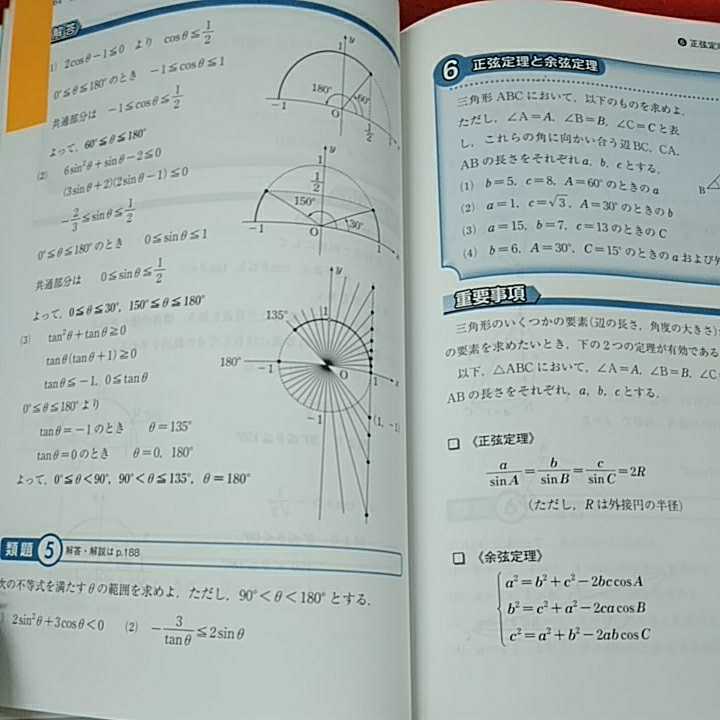 解答
(1) 2cosθ-1≦0 より cosθ≦1/2
0°≦θ≦180°のとき -1≦cosθ≦1
共通部分は -1≦cosθ≦1/2
よって，60°≦θ≦180°
(2) 6sin²θ+sinθ-2≦0
(3sinθ+2)(2sinθ-1)≦0
-2/3≦sinθ≦1/2
0°≦θ≦180°のとき 0≦sinθ≦1
共通部分は 0≦sinθ≦1/2
よって，0≦θ≦30°，150°≦θ≦180°
(3) tan²θ+tanθ≧0
tanθ(tanθ+1)≧0
tanθ≦-1，0≦tanθ
0°≦θ≦180°より
tanθ=-1のとき θ=135°
tanθ=0のとき θ=0，180°
よって，0°≦θ<90°，90°<θ≦135°，θ=180°
y
1
180°
60°
-1
O
1/2
1
x
y
1
1/2
150°
30°
-1
O
1
x
y
135°
1
180°
-1
O
1
x
-1
(1, -1)
類題 5 解答・解説は p.188
次の不等式を満たすθの範囲を求めよ．ただし，90°<θ<180°とする．
2sin²θ+3cosθ<0 (2) -3/tanθ≦2sinθ
❻ 正弦定
6 正弦定理と余弦定理
三角形 ABC において，以下のものを求めよ．
ただし，∠A=A，∠B=B，∠C=C と表
し，これらの角に向かい合う辺 BC，CA，
AB の長さをそれぞれ a，b，c とする．
(1) b=5，c=8，A=60°のときの a
(2) a=1，c=√3，A=30°のときの b
(3) a=15，b=7，c=13のときの C
(4) b=6，A=30°，C=15°のときの a および
B
重要事項
三角形のいくつかの要素(辺の長さ，角度の大きさ)
の要素を求めたいとき，下の2つの定理が有効である
以下，△ABC において，∠A=A，∠B=B，∠C
AB の長さをそれぞれ，a，b，c とする．
□ 《正弦定理》
a/sinA=b/sinB=c/sinC=2R
(ただし，R は外接円の半径)
□ 《余弦定理》
a²=b²+c²-2bc cosA
b²=c²+a²-2ca cosB
c²=a²+b²-2ab cosC